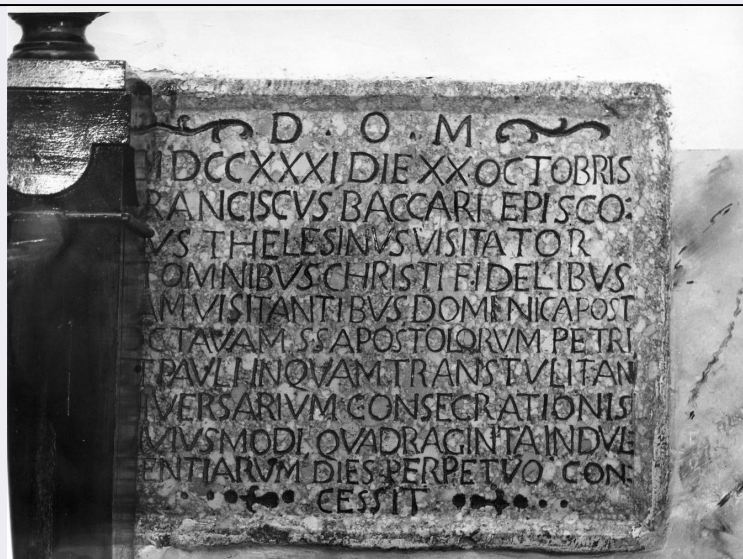 D . O . M
MDCCXXXI DIE XX OCTOBRIS
RANCISCVS BACCARI EPISCO:
VS THELESINVS VISITATOR
OMNIBVS CHRISTI FIDELIBVS
AM VISITANTIBVS DOMENICA POST
OCTAVAM SS APOSTOLORVM PETRI
T PAVLI IN QVAM TRANSTVLIT AN
IVERSARIVM CONSECRATIONIS
VIVSMODI QVADRAGINTA INDVL
ENTIARVM DIES PERPETVO CON:
CESSIT